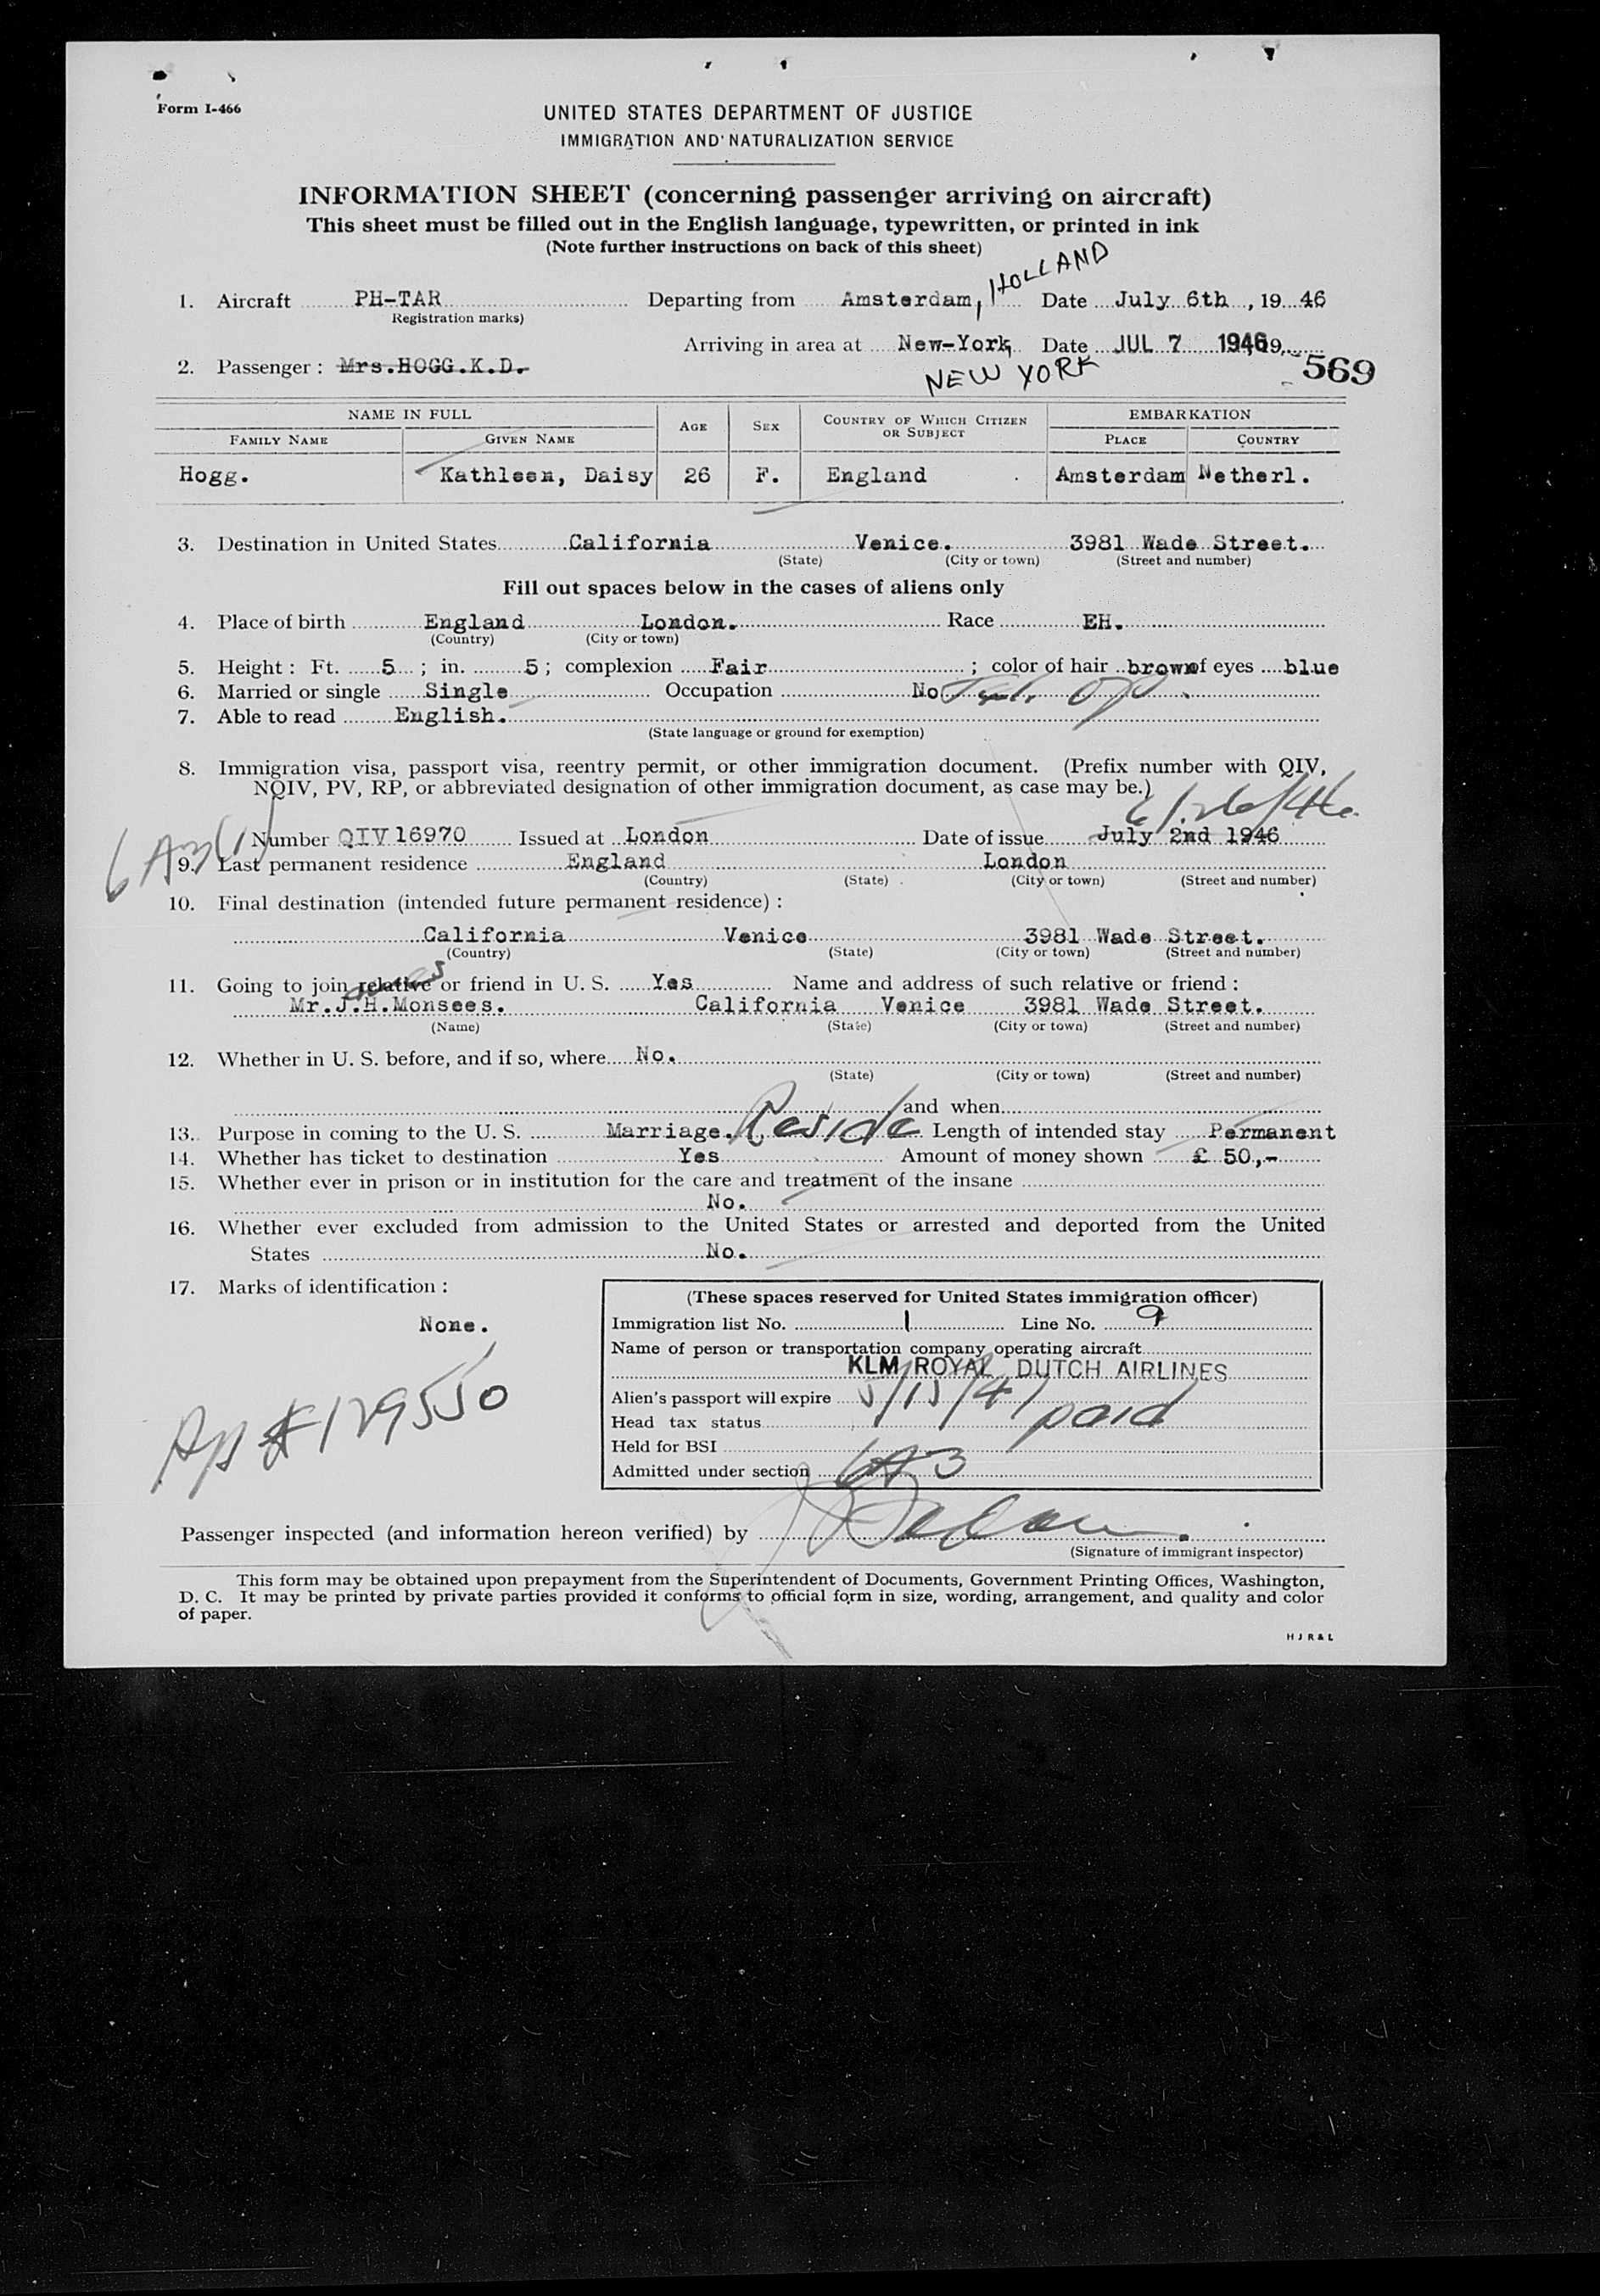 Form I-466
UNITED STATES DEPARTMENT OF JUSTICE
IMMIGRATION AND NATURALIZATION SERVICE
INFORMATION SHEET (concerning passenger arriving on aircraft)
This sheet must be filled out in the English language, typewritten, or printed in ink
(Note further instructions on back of this sheet)
1. Aircraft PH-TAR Departing from Amsterdam, HOLLAND Date July 6th, 19 46
Registration marks)
Arriving in area at New-York, Date JUL 7 1946 19
2. Passenger: Mrs.HOGG.K.D. NEW YORK 569
NAME IN FULL AGE SEX COUNTRY OF WHICH CITIZEN OR SUBJECT EMBARKATION
FAMILY NAME GIVEN NAME PLACE COUNTRY
Hogg. Kathleen, Daisy 26 F. England Amsterdam Netherl.
3. Destination in United States California Venice. 3981 Wade Street.
(State) (City or town) (Street and number)
Fill out spaces below in the cases of aliens only
4. Place of birth England London. Race EH.
(Country) (City or town)
5. Height: Ft. 5; in. 5; complexion Fair; color of hair brown of eyes blue
6. Married or single Single Occupation No Tel. op.
7. Able to read English.
(State language or ground for exemption)
8. Immigration visa, passport visa, reentry permit, or other immigration document. (Prefix number with QIV,
NQIV, PV, RP, or abbreviated designation of other immigration document, as case may be.)
6/26/46
Number QIV 16970 Issued at London Date of issue July 2nd 1946
9. Last permanent residence England London
(Country) (State) (City or town) (Street and number)
10. Final destination (intended future permanent residence):
California Venice 3981 Wade Street.
(Country) (State) (City or town) (Street and number)
11. Going to join relative or friend in U. S. Yes Name and address of such relative or friend:
Mr.J.H.Monsees. California Venice 3981 Wade Street.
(Name) (State) (City or town) (Street and number)
12. Whether in U. S. before, and if so, where No.
(State) (City or town) (Street and number)
and when
13. Purpose in coming to the U. S. Marriage. Reside Length of intended stay Permanent
14. Whether has ticket to destination Yes Amount of money shown £ 50,-
15. Whether ever in prison or in institution for the care and treatment of the insane
No.
16. Whether ever excluded from admission to the United States or arrested and deported from the United
States No.
17. Marks of identification:
None.
(These spaces reserved for United States immigration officer)
Immigration list No. 1 Line No. 9
Name of person or transportation company operating aircraft
KLM ROYAL DUTCH AIRLINES
Alien's passport will expire 5/15/47
Head tax status paid
Held for BSI
Admitted under section 6A3
App #129550
Passenger inspected (and information hereon verified) by
(Signature of immigrant inspector)
This form may be obtained upon prepayment from the Superintendent of Documents, Government Printing Offices, Washington,
D. C. It may be printed by private parties provided it conforms to official form in size, wording, arrangement, and quality and color
of paper.
H J R & L